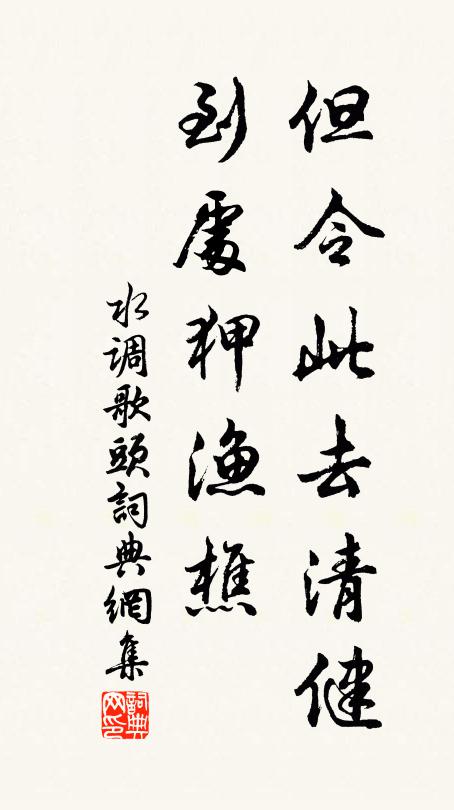 但令此去清健
到處狎漁樵
水调歌頭詞典網集
詞典网印